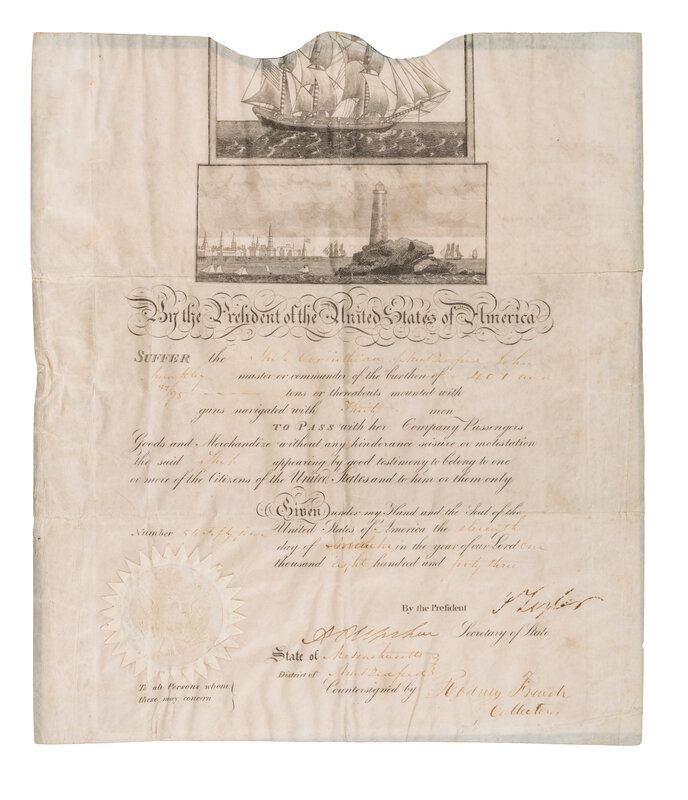 By the President of the United States of America
SUFFER the Ship Corinthian of New Bedford John
master or commander of the burthen of 401 and
/95 tons or thereabouts mounted with
guns navigated with men
TO PASS with her Company Passengers
Goods and Merchandize without any hinderance seisure or molestation
the said Ship appearing by good testimony to belong to one
or more of the Citizens of the United States and to him or them only
Given under my Hand and the Seal of the
Number United States of America the eleventh
day of in the year of our Lord One
thousand eight hundred and forty three
By the President J Tyler
A P Upshur Secretary of State
State of Massachusetts
District of New Bedford
To all Persons whom Countersigned by Rodney French
these may concern Collector